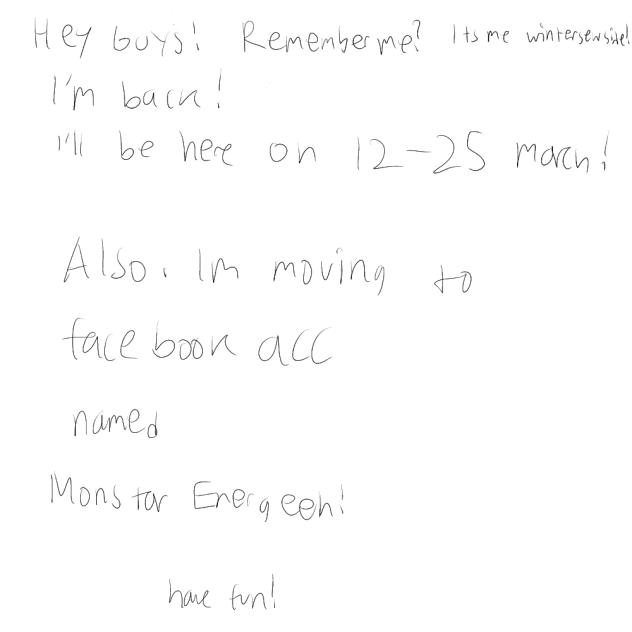 Hey Guys! Remember me? Its me wintersewside!
I'm back!
I'll be here on 12-25 march!
Also. Im moving to
facebook acc
named
Monstar Energeeh!
have fun!